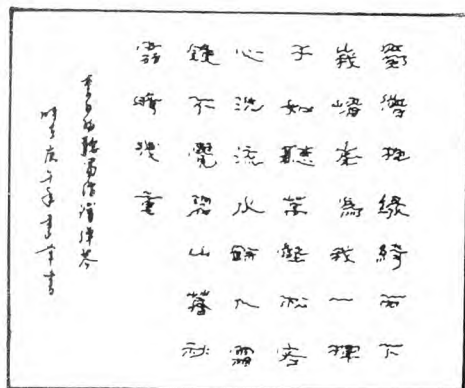 蜀僧抱綠綺西下
峩嵋峯為我一揮
手如聽萬壑松客
心洗流水餘入霜
鐘不覺碧山暮秋
雲暗幾重
李白的聽蜀僧濬彈琴
庚午年書